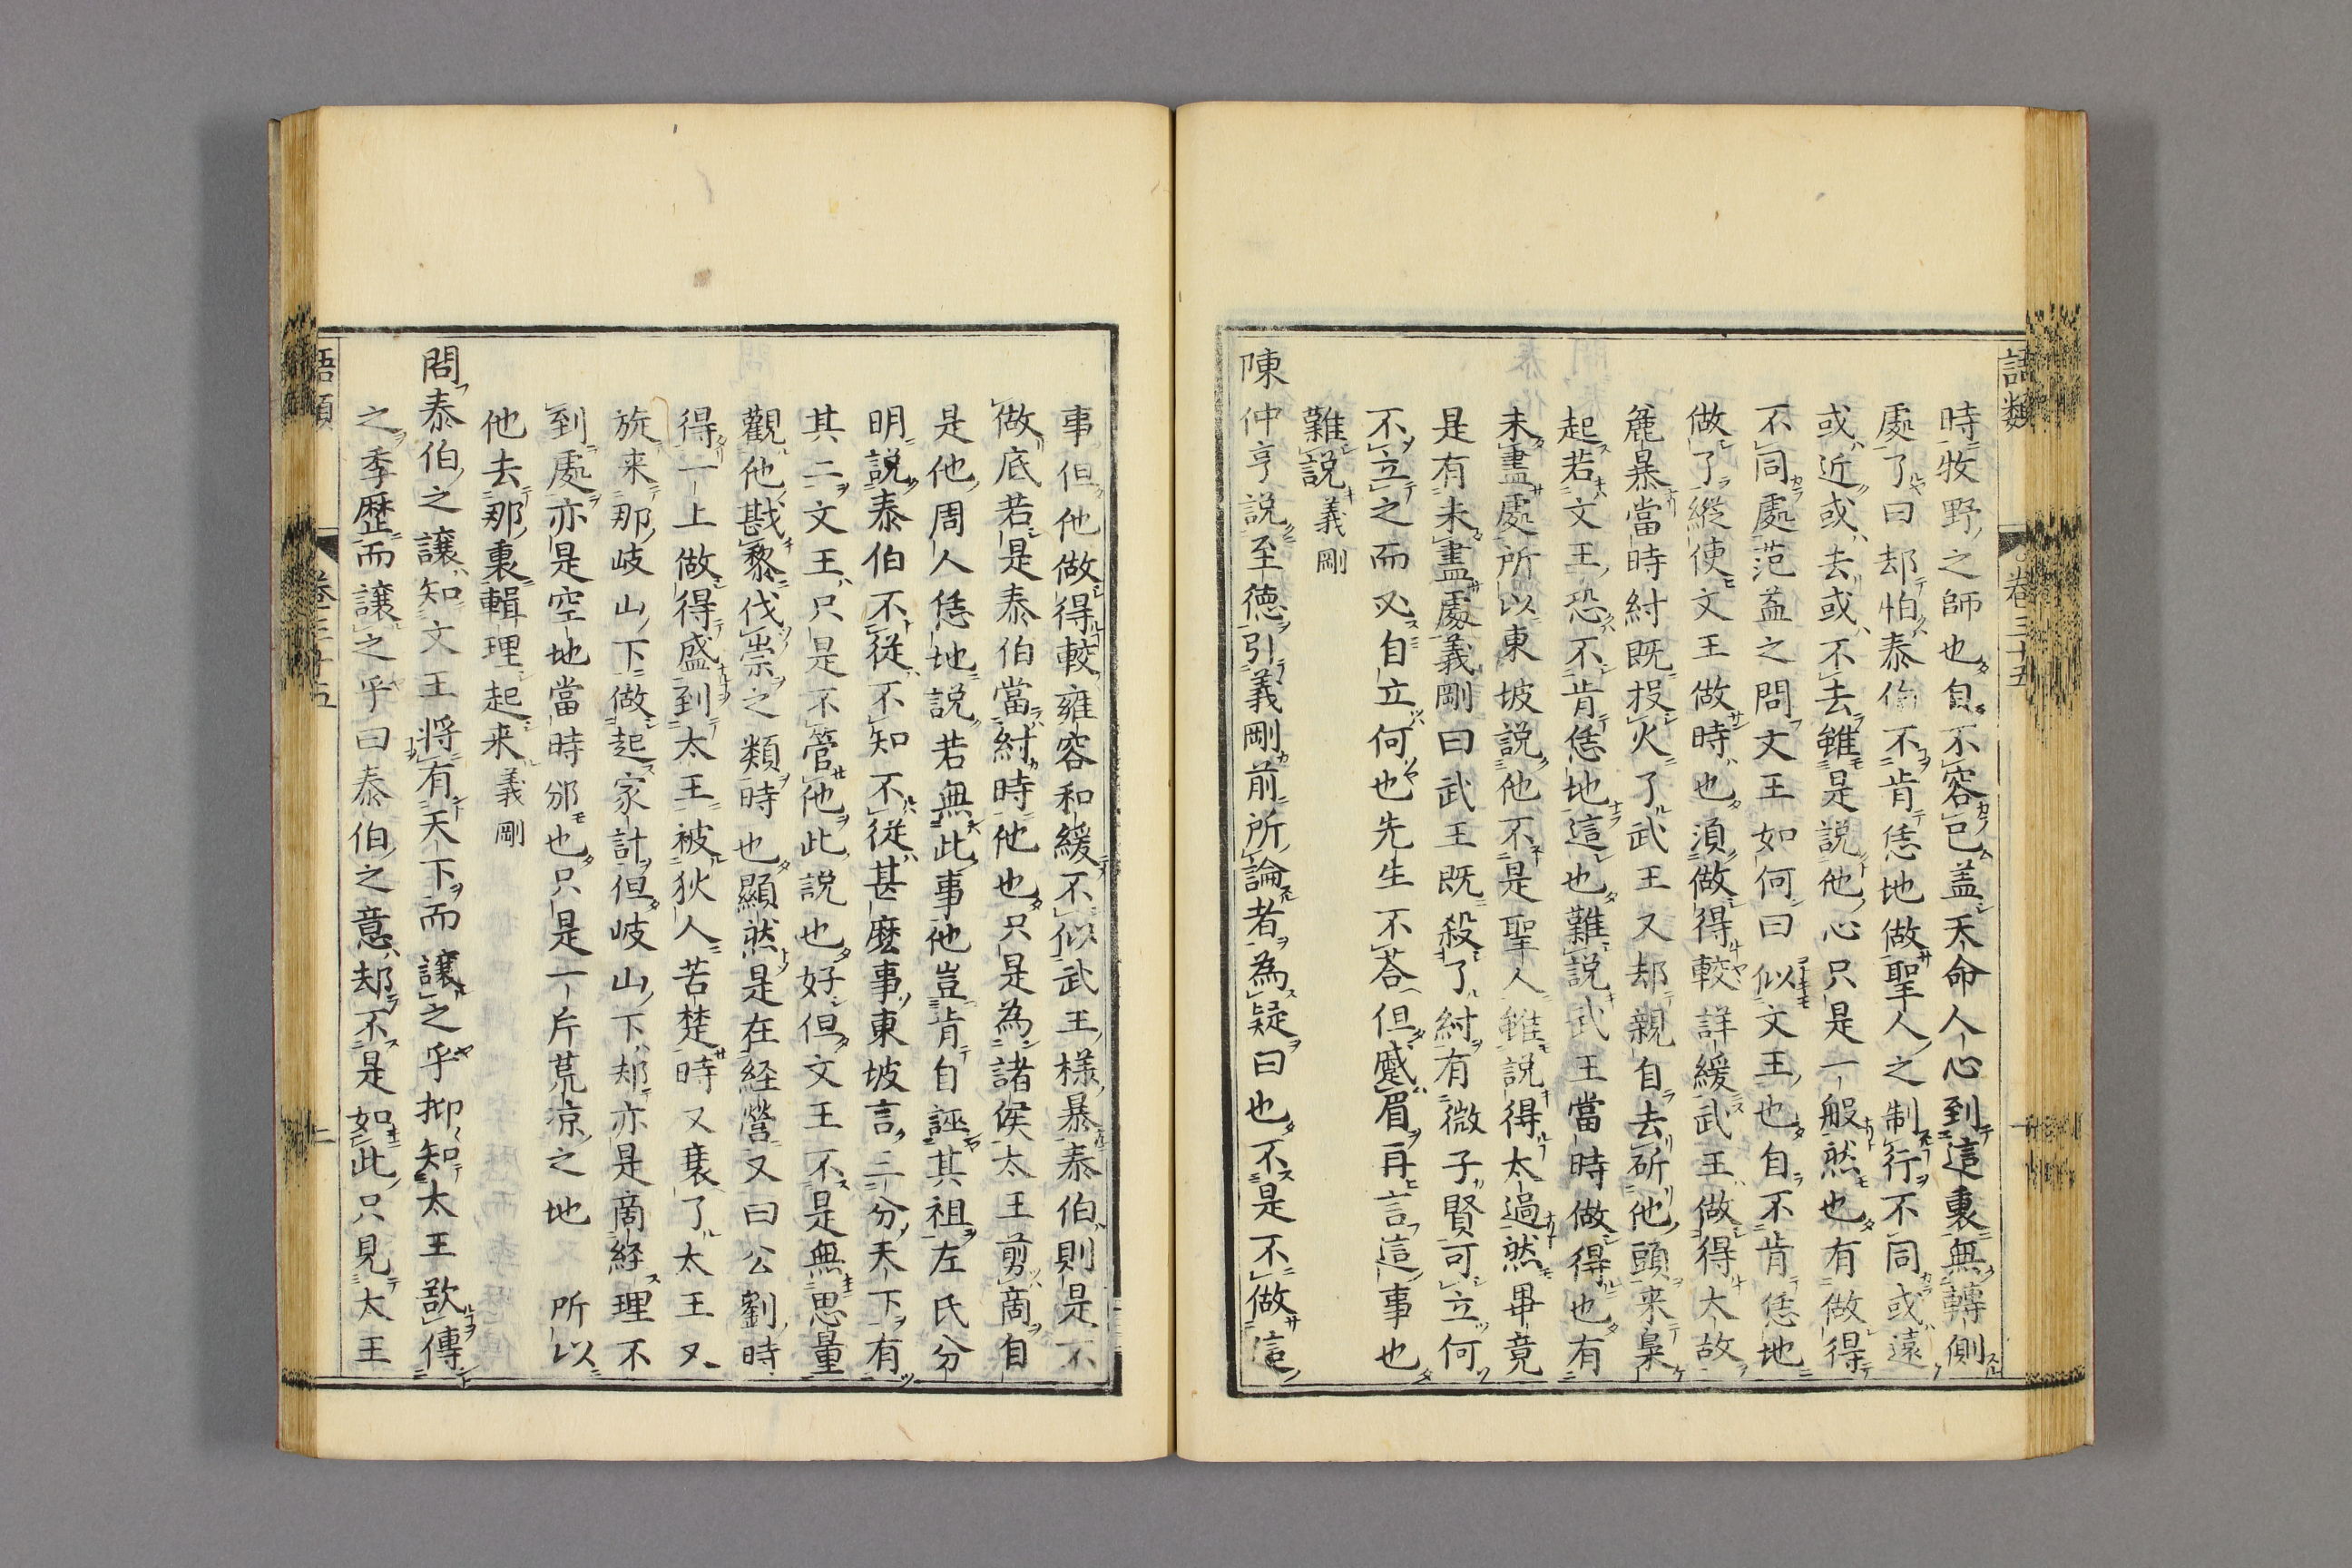 語類
卷三十五
時牧野之師也自不容已盖天命人心到這裏無轉側
處了曰却怕泰伯不肯恁地做聖人之制行不同或遠
或近或去或不去雖是説他心只是一般然也有做得
不同處范益之問文王如何曰似文王也自不肯恁地
做了縱使文王做時也須做得較詳緩武王做得太故
麁暴當時紂既投火了武王又却親自去斫他頭来梟
起若文王恐不肯恁地這也難説武王當時做得也有
未盡處所以東坡説他不是聖人雖説得太過然畢竟
是有未盡處義剛曰武王既殺了紂有微子賢可立何
不立之而又自立何也先生不荅但蹙眉再言這事也
難説義剛
陳仲亨説至徳引義剛前所論者為疑曰也不是不做這
事但他做得較雍容和緩不似武王様暴泰伯則是不
做底若是泰伯當紂時他也只是為諸侯太王剪商自
是他周人恁地説若無此事他豈肯自誣其祖左氏分
明説泰伯不従不知不従甚麽事東坡言三分天下有
其二文王只是不管他此説也好但文王不是無思量
觀他戡黎伐崇之類時也顯然是在経營又曰公劉時
得一上做得盛到太王被狄人苦楚時又衰了太王又
旋来那岐山下做起家計但岐山下却亦是商経理不
到處亦是空地當時邠也只是一片荒涼之地所以
他去那裏輯理起来義剛
問泰伯之譲知文王将有天下而譲之乎抑知太王欲傳
之季歴而譲之乎曰泰伯之意却不是如此只見太王
語類
卷三十五